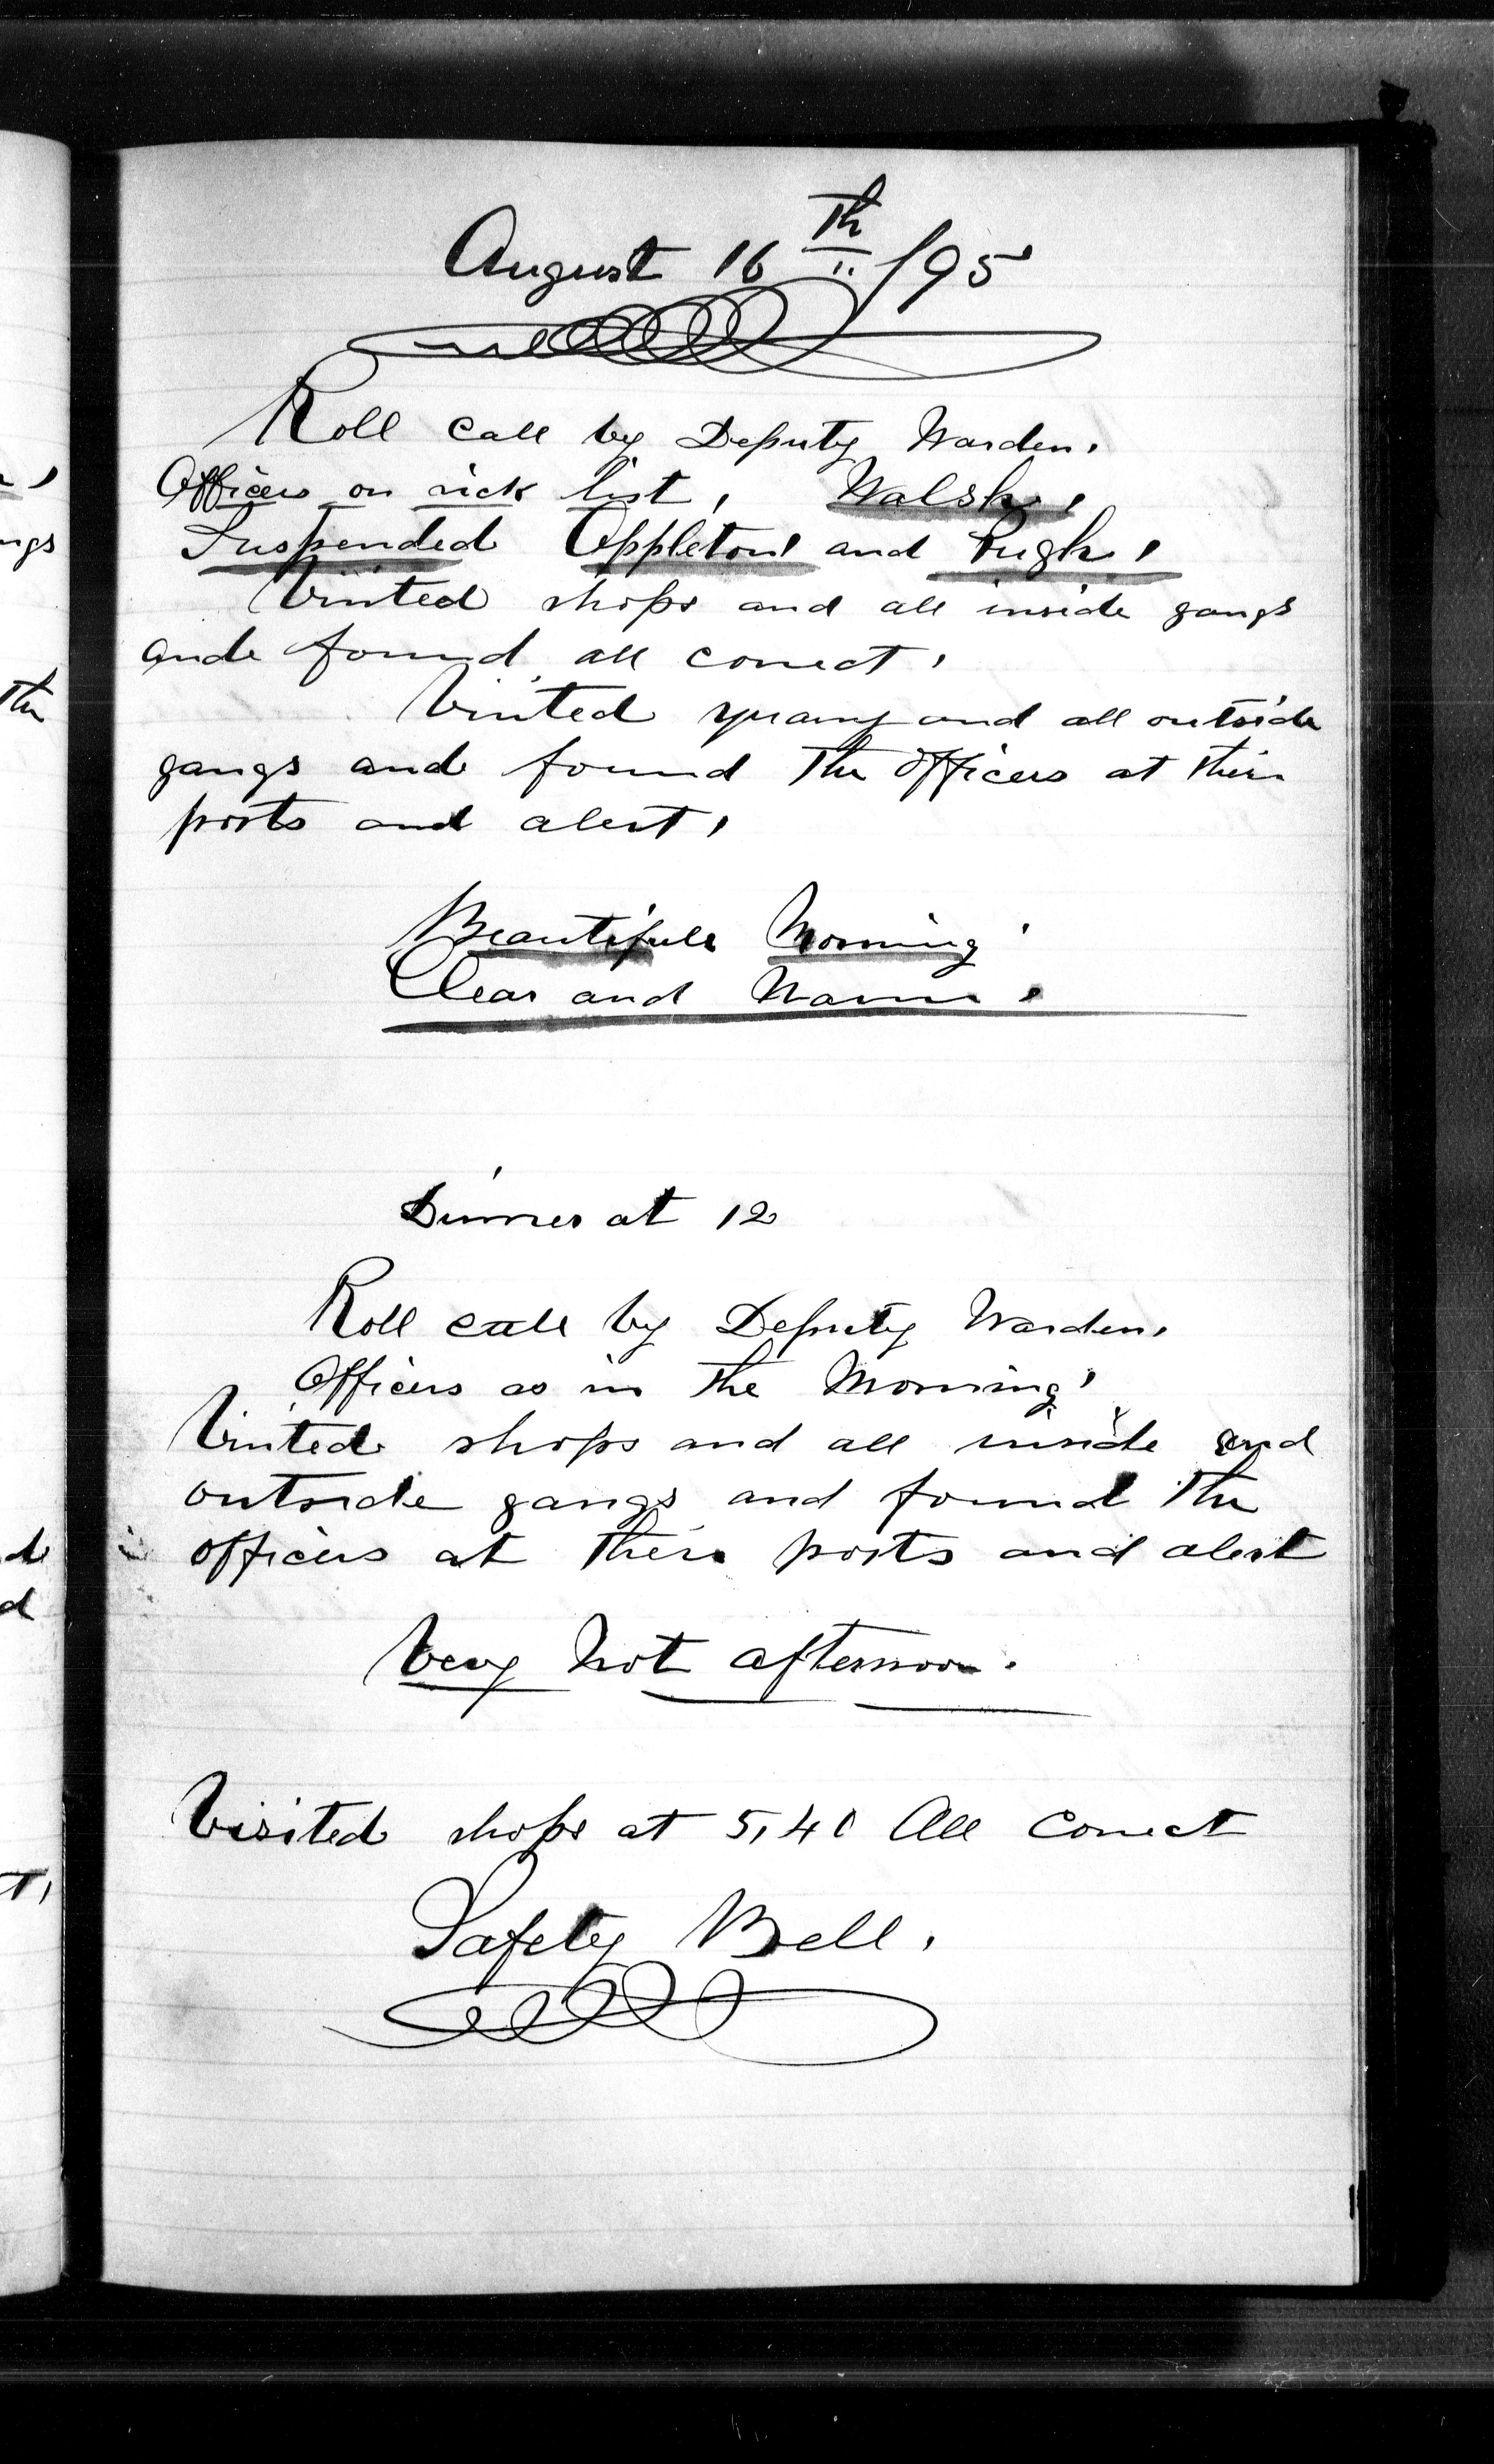 August 16th /95
Roll call by Deputy Warden.
Officers on sick list, Walsh,
Suspended Appleton and Pugh,
Visited shops and all inside gangs
and found all correct,
Visited quarry and all outside
gangs and found the officers at their
posts and alert,
Beautiful Morning
Clear and Warm,
Dinner at 12
Roll call by Deputy Warden,
Officers as in the Morning,
Visited shops and all inside and
outside gangs and found the
officers at their posts and alert
Very hot afternoon.
Visited shops at 5,40 All Correct
Safety Bell,